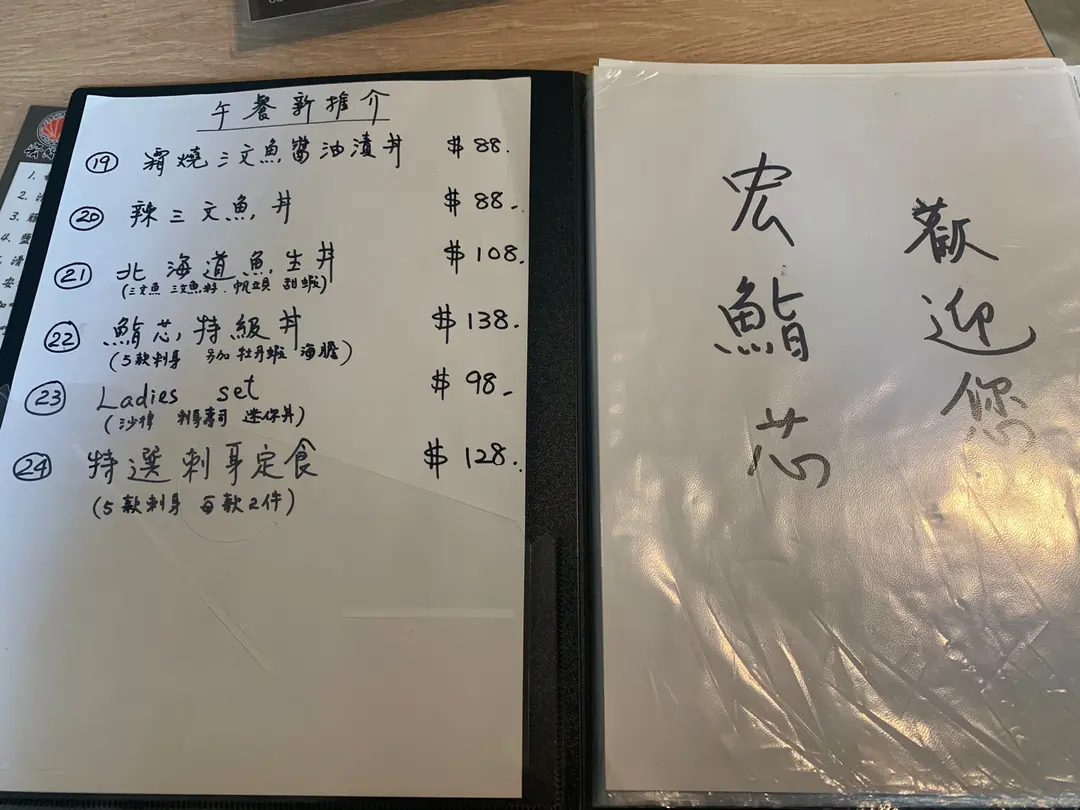 午餐新推介
⑲ 霜燒三文魚醬油漬丼 $88.
⑳ 辣三文魚丼 $88.
㉑ 北海道魚生丼 $108.
(三文魚 三文魚籽 帆立貝 甜蝦)
㉒ 鮨芯特級丼 $138.
(5款刺身 另加牡丹蝦 海膽)
㉓ Ladies set $98.
(沙律 刺身壽司 迷你丼)
㉔ 特選刺身定食 $128.
(5款刺身 每款2件)
歡迎您
宏鮨芯
1.
2.
3.
4.